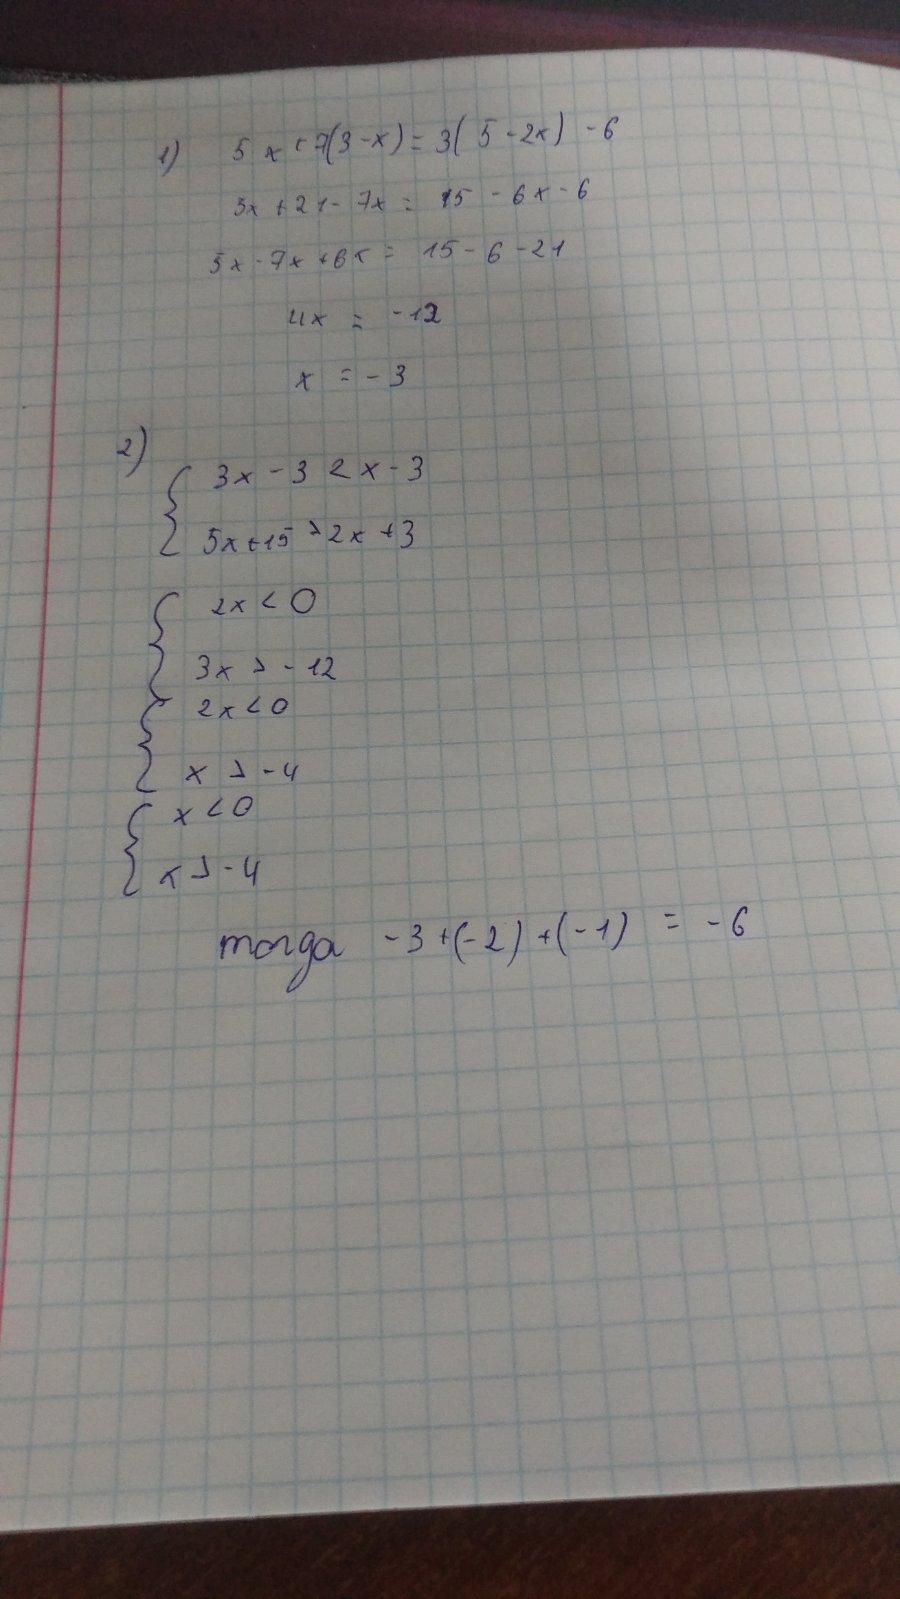 1) 5x+7(3-x)=3(5-2x)-6
3x+21-7x=15-6x-6
5x-7x+6x=15-6-21
4x=-12
x=-3
2)
{ 3x-3<x-3
5x+15>2x+3
{ 2x<0
3x>-12
{ 2x<0
x>-4
{ x<0
x>-4
тогда -3+(-2)+(-1)=-6